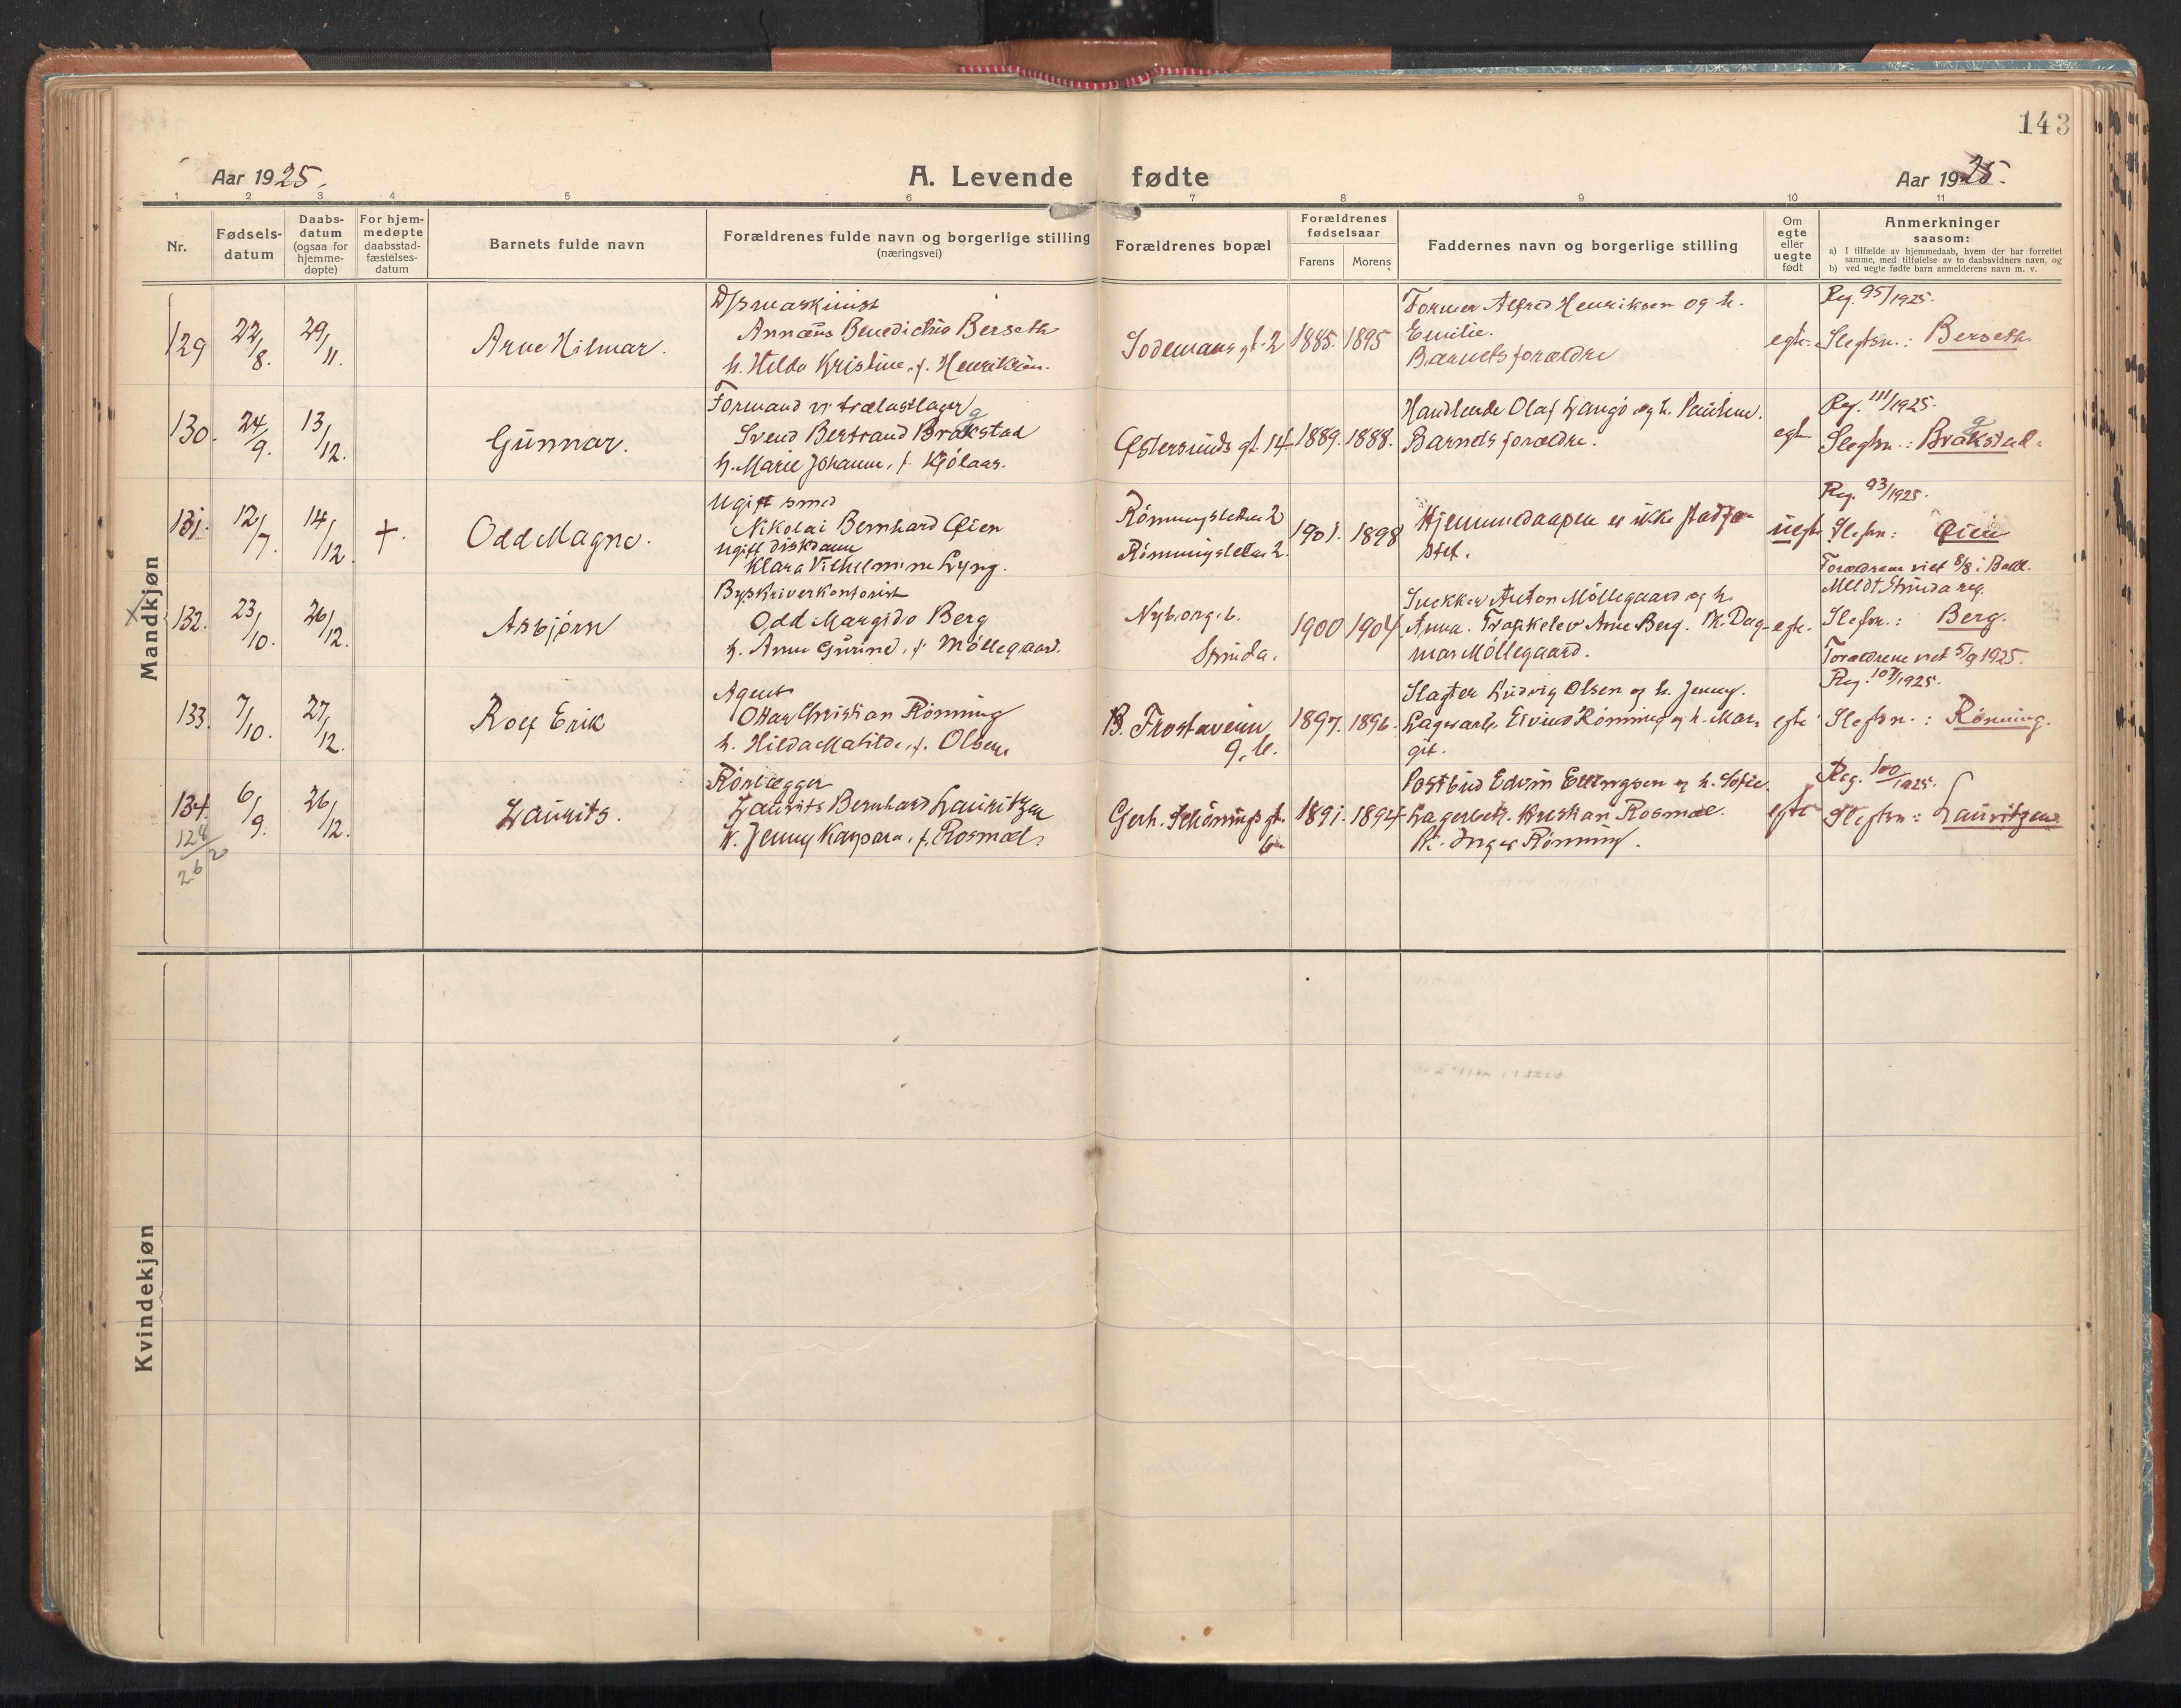 143
Aar 1925.
A. Levende fødte
Aar 1925.
1 2 3 4 5 6 7 8 9 10 11
Nr.
Fødsels-
datum
Daabs-
datum
(ogsaa for
hjemme-
døpte)
For hjem-
medøpte
daabsstad-
fæstelses-
datum
Barnets fulde navn
Forældrenes fulde navn og borgerlige stilling
(næringsvei)
Forældrenes bopæl
Forældrenes
fødselsaar
Farens Morens
Faddernes navn og borgerlige stilling
Om
egte
eller
uegte
født
Anmerkninger
saasom:
a) I tilfælde av hjemmedaab, hvem der har forrettet
samme, med tilføielse av to daabsvidners navn, og
b) ved uegte fødte barn anmelderens navn m. v.
Mandkjøn
129 22/8. 29/11. Arne Hilmar.
D/smaskinist
Annæus Benedictus Berseth
h. Hilda Kristine, f. Henriksen.
Sodemans gt. 2 1885. 1895
Former Alfred Henriksen og h.
Emilie.
Barnets forældre
egte.
Reg. 95/1925.
Slegtsn.: Berseth.
130. 24/9. 13/12. Gunnar.
Formand v. trælastlager
Svend Bertrand Brakstad
g
h. Marie Johanne, f. Kjölaas.
Østersunds gt. 14 1889. 1888.
Handlende Olaf Langö og h. Pauline.
Barnets forældre.
egte
Reg. 111/1925.
g
Slegtsn.: Brakstad.
131. 12/7. 14/12 +. Odd Magne.
Ugift smed
Nikolai Bernhard Øien
ugift diskdame
Klara Vilhelmine Lyng.
Rönningsletten 2
Rönningsletten 2.
1901. 1898
Hjemmedaapen er ikke stadfæ-
stet.
uegte
Reg. 93/1925.
Slegtsn: Øien
Forældrene viet 8/8 i Bakl.
132. 23/10. 26/12. Asbjørn
Byskriverkontorist
Odd Margido Berg
h. Anna Gurine, f. Möllegaard.
Nyborg b.
Strinda.
1900 1904
Snekker Anton Möllegaard og h.
Anna. Trafikelev Arne Berg. Fr. Dag-
mar Möllegaard.
egte.
Meldt Strinda reg.
Slegtsn.: Berg.
Forældrene viet 5/9 1925.
133. 7/10. 27/12. Rolf Erik
Agent
Ottar Christian Rönning
h. Hilda Matilde, f. Olsen
B. Frostaveien
9, b.
1897. 1896.
Slagter Ludvig Olsen og h. Jenny.
Lagerarb. Eivind Rönning og h. Mar-
git.
egte
Reg. 107/1925.
Slegtsn.: Rönning.
134. 6/9. 26/12. Laurits.
Rörlægger
Laurits Bernhard Lauritzen
h. Jenny Kaspara, f. Rosmæl.
Gerh. Schönings gt.
6.
1891. 1894
Postbud Edvin Ellingsen og h. Sofie.
Lagerbetj. Kristian Rosmæl.
Fr. Inger Rönning.
egte
Reg. 100/1925.
Slegtsn: Lauritzen
Kvindekjøn